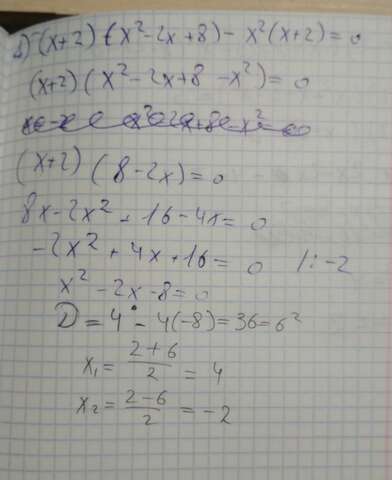 (x+2)(x²-2x+8)-x²(x+2)=0
(x+2)(x²-2x+8-x²)=0
(x+2)(8-2x)=0
8x-2x²+16-4x=0
-2x²+4x+16=0 /:-2
x²-2x-8=0
D=4-4(-8)=36=6²
x₁=(2+6)/2=4
x₂=(2-6)/2=-2